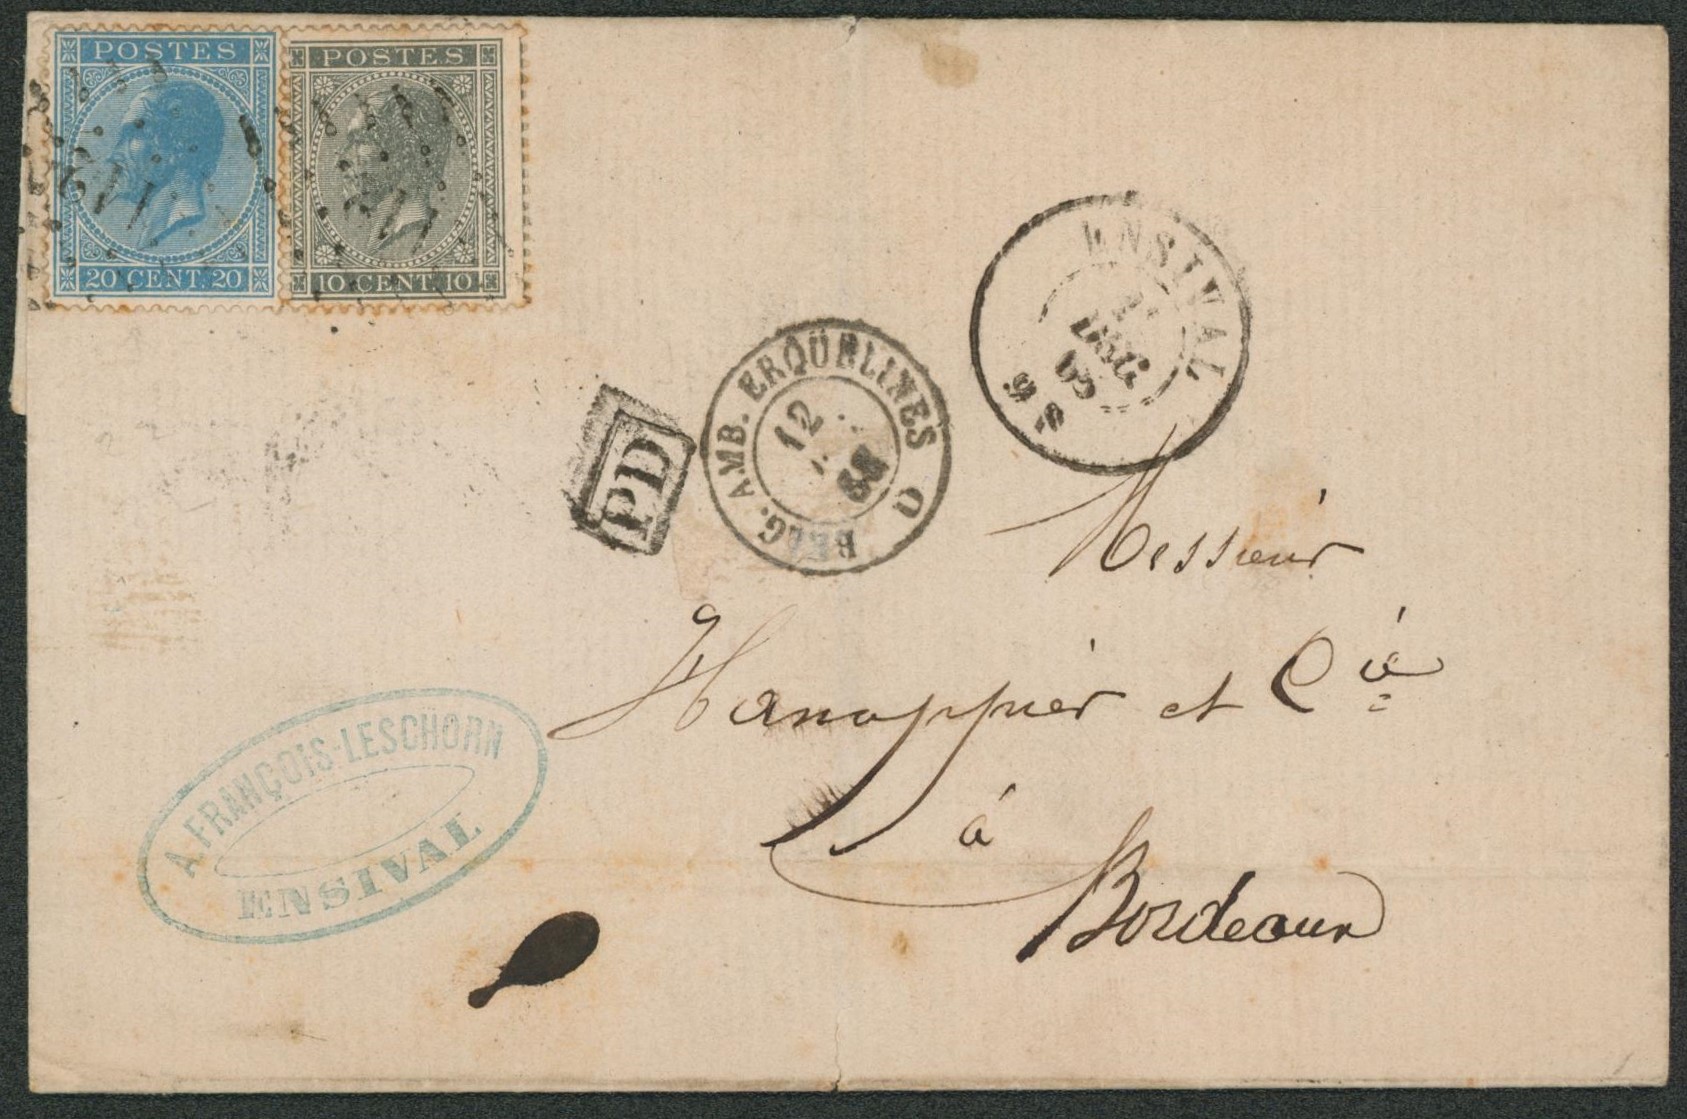 POSTES
20 CENT. 20
POSTES
10 CENT. 10
ENSIVAL
DEC
BELG. AMB. ERQUELINES
12
PD
Messieur
Hanappier et Cie
à
Bordeaux
A. FRANÇOIS-LESCHORN
ENSIVAL